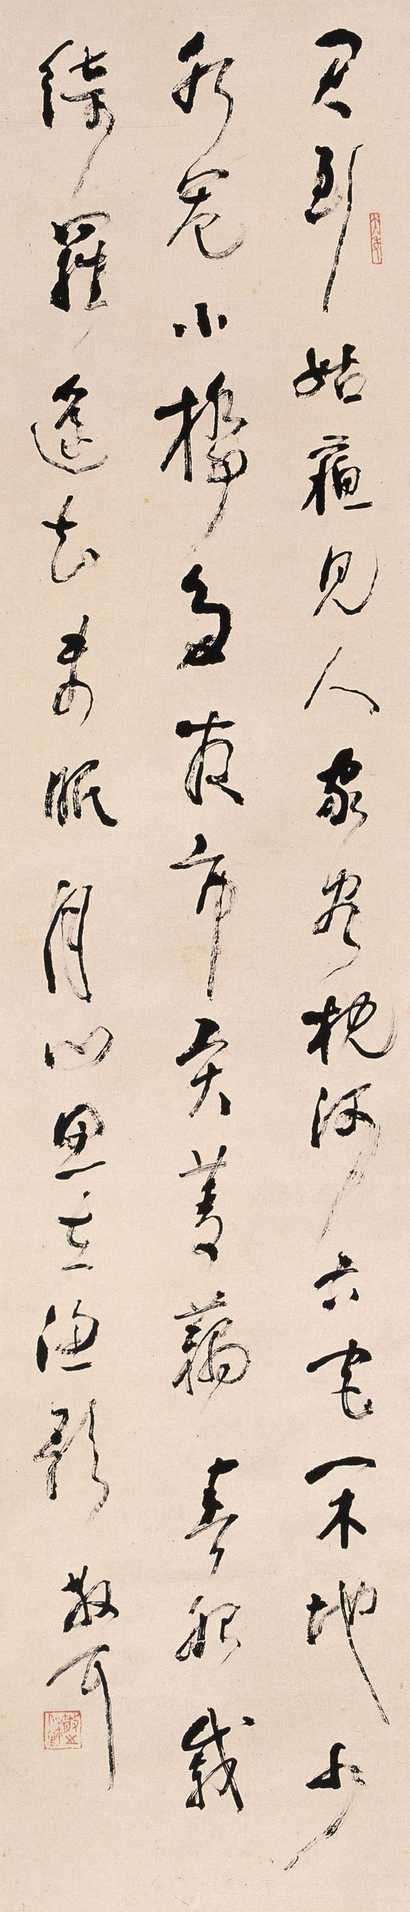 君到姑蘇見人家盡枕河古宮閑地少
水巷小橋多夜市賣菱藕春船載
綺羅遙知未眠月鄉思在漁歌 散耳